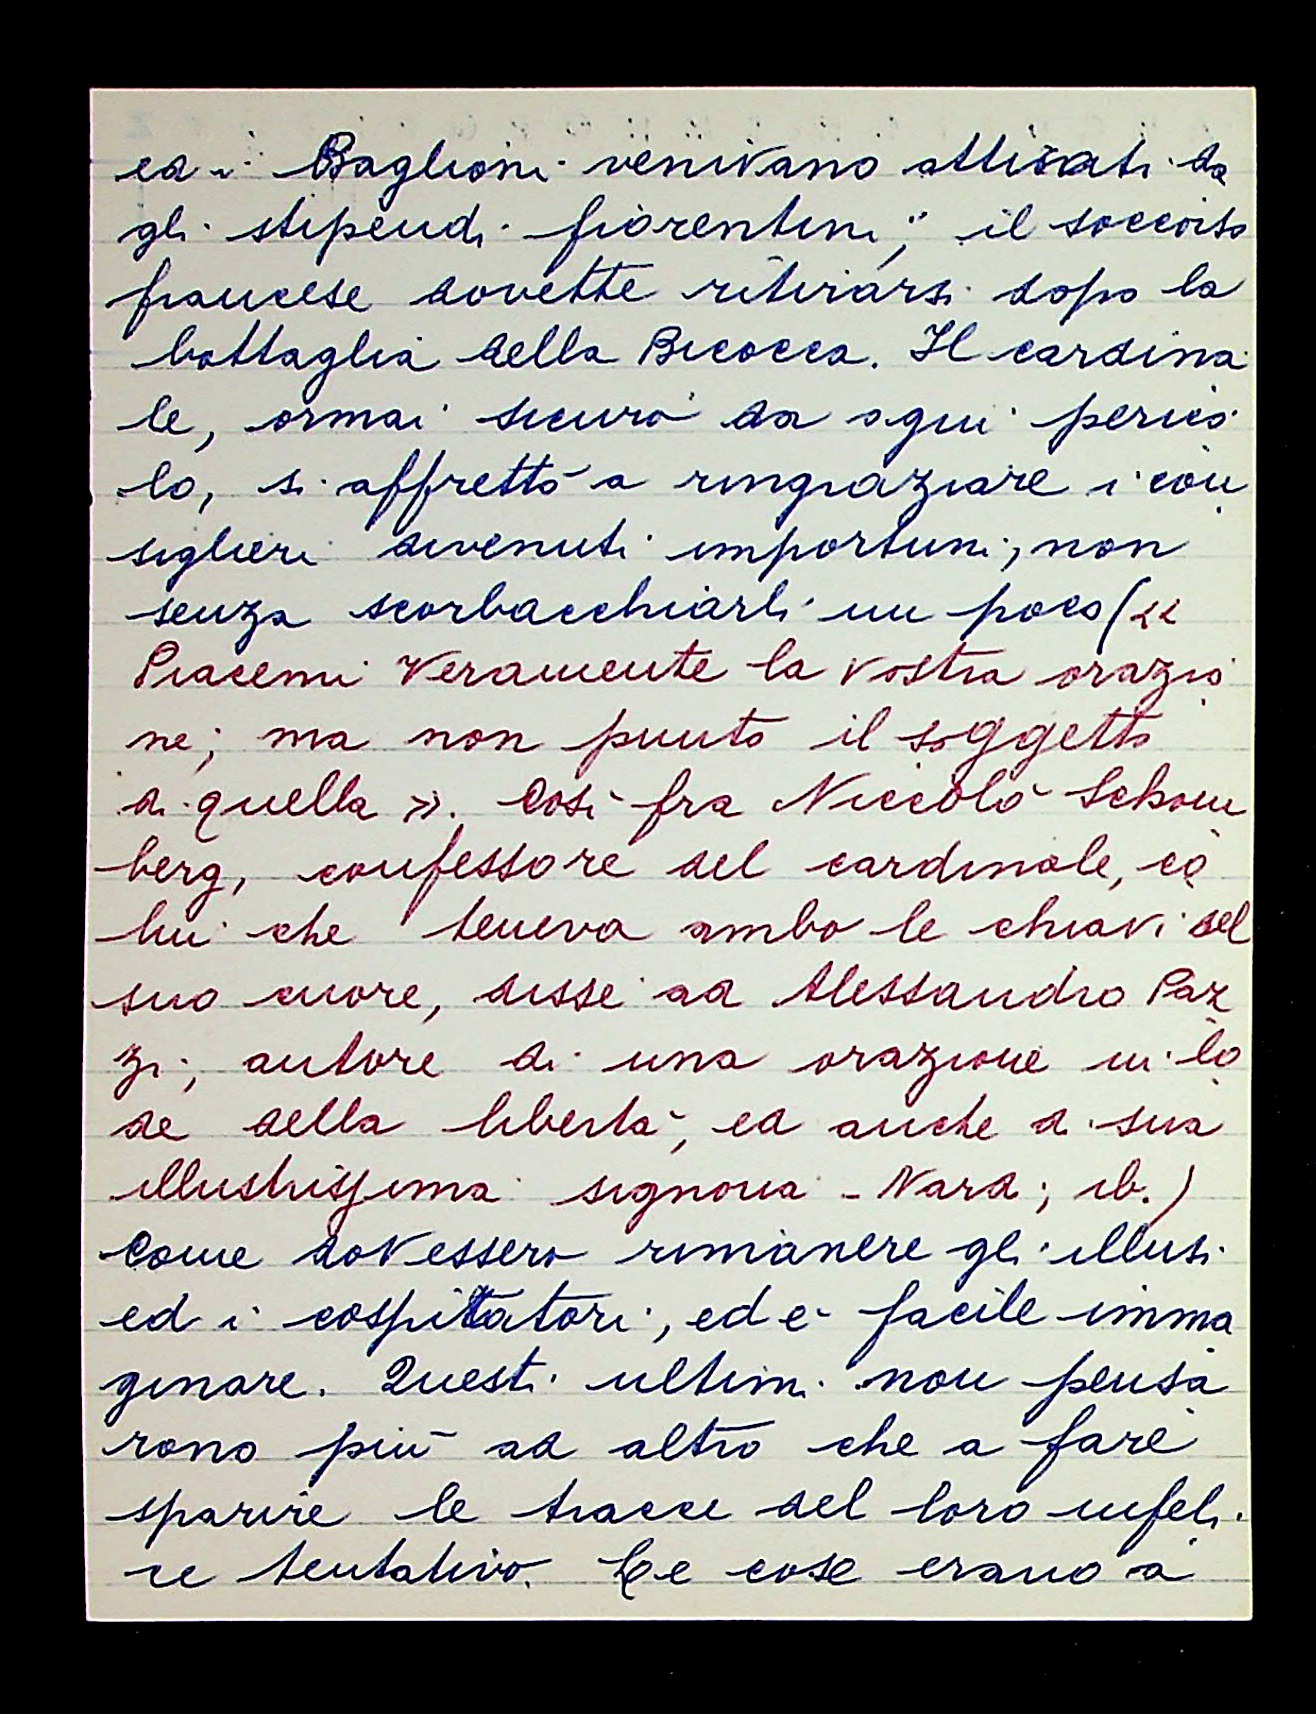 ed i Baglioni venivano attirati da
gli stipendi fiorentini; il soccorso
francese dovette ritirarsi dopo la
battaglia della Bicocca. Il cardina
le, ormai sicuro da ogni perico
lo, si affrettò a ringraziare i con
siglieri divenuti importuni, non
senza scorbacchiarli un poco («
Piacemi veramente la vostra orazio
ne; ma non punto il soggetto
di quella ». Così fra Niccolò Schom
berg, confessore del cardinale, co
lui che teneva ambo le chiavi del
suo cuore, disse ad Alessandro Paz
zi, autore di una orazione in lo
de della libertà, ed anche di sua
illustrissima signoria - Nard; ib.)
Come dovessero rimanere gli illusi
ed i cospitatori, ed è facile imma
ginare. Questi ultimi non pensa
rono più ad altro che a fare
sparire le tracce del loro infeli
ce tentativo. Le cose erano a